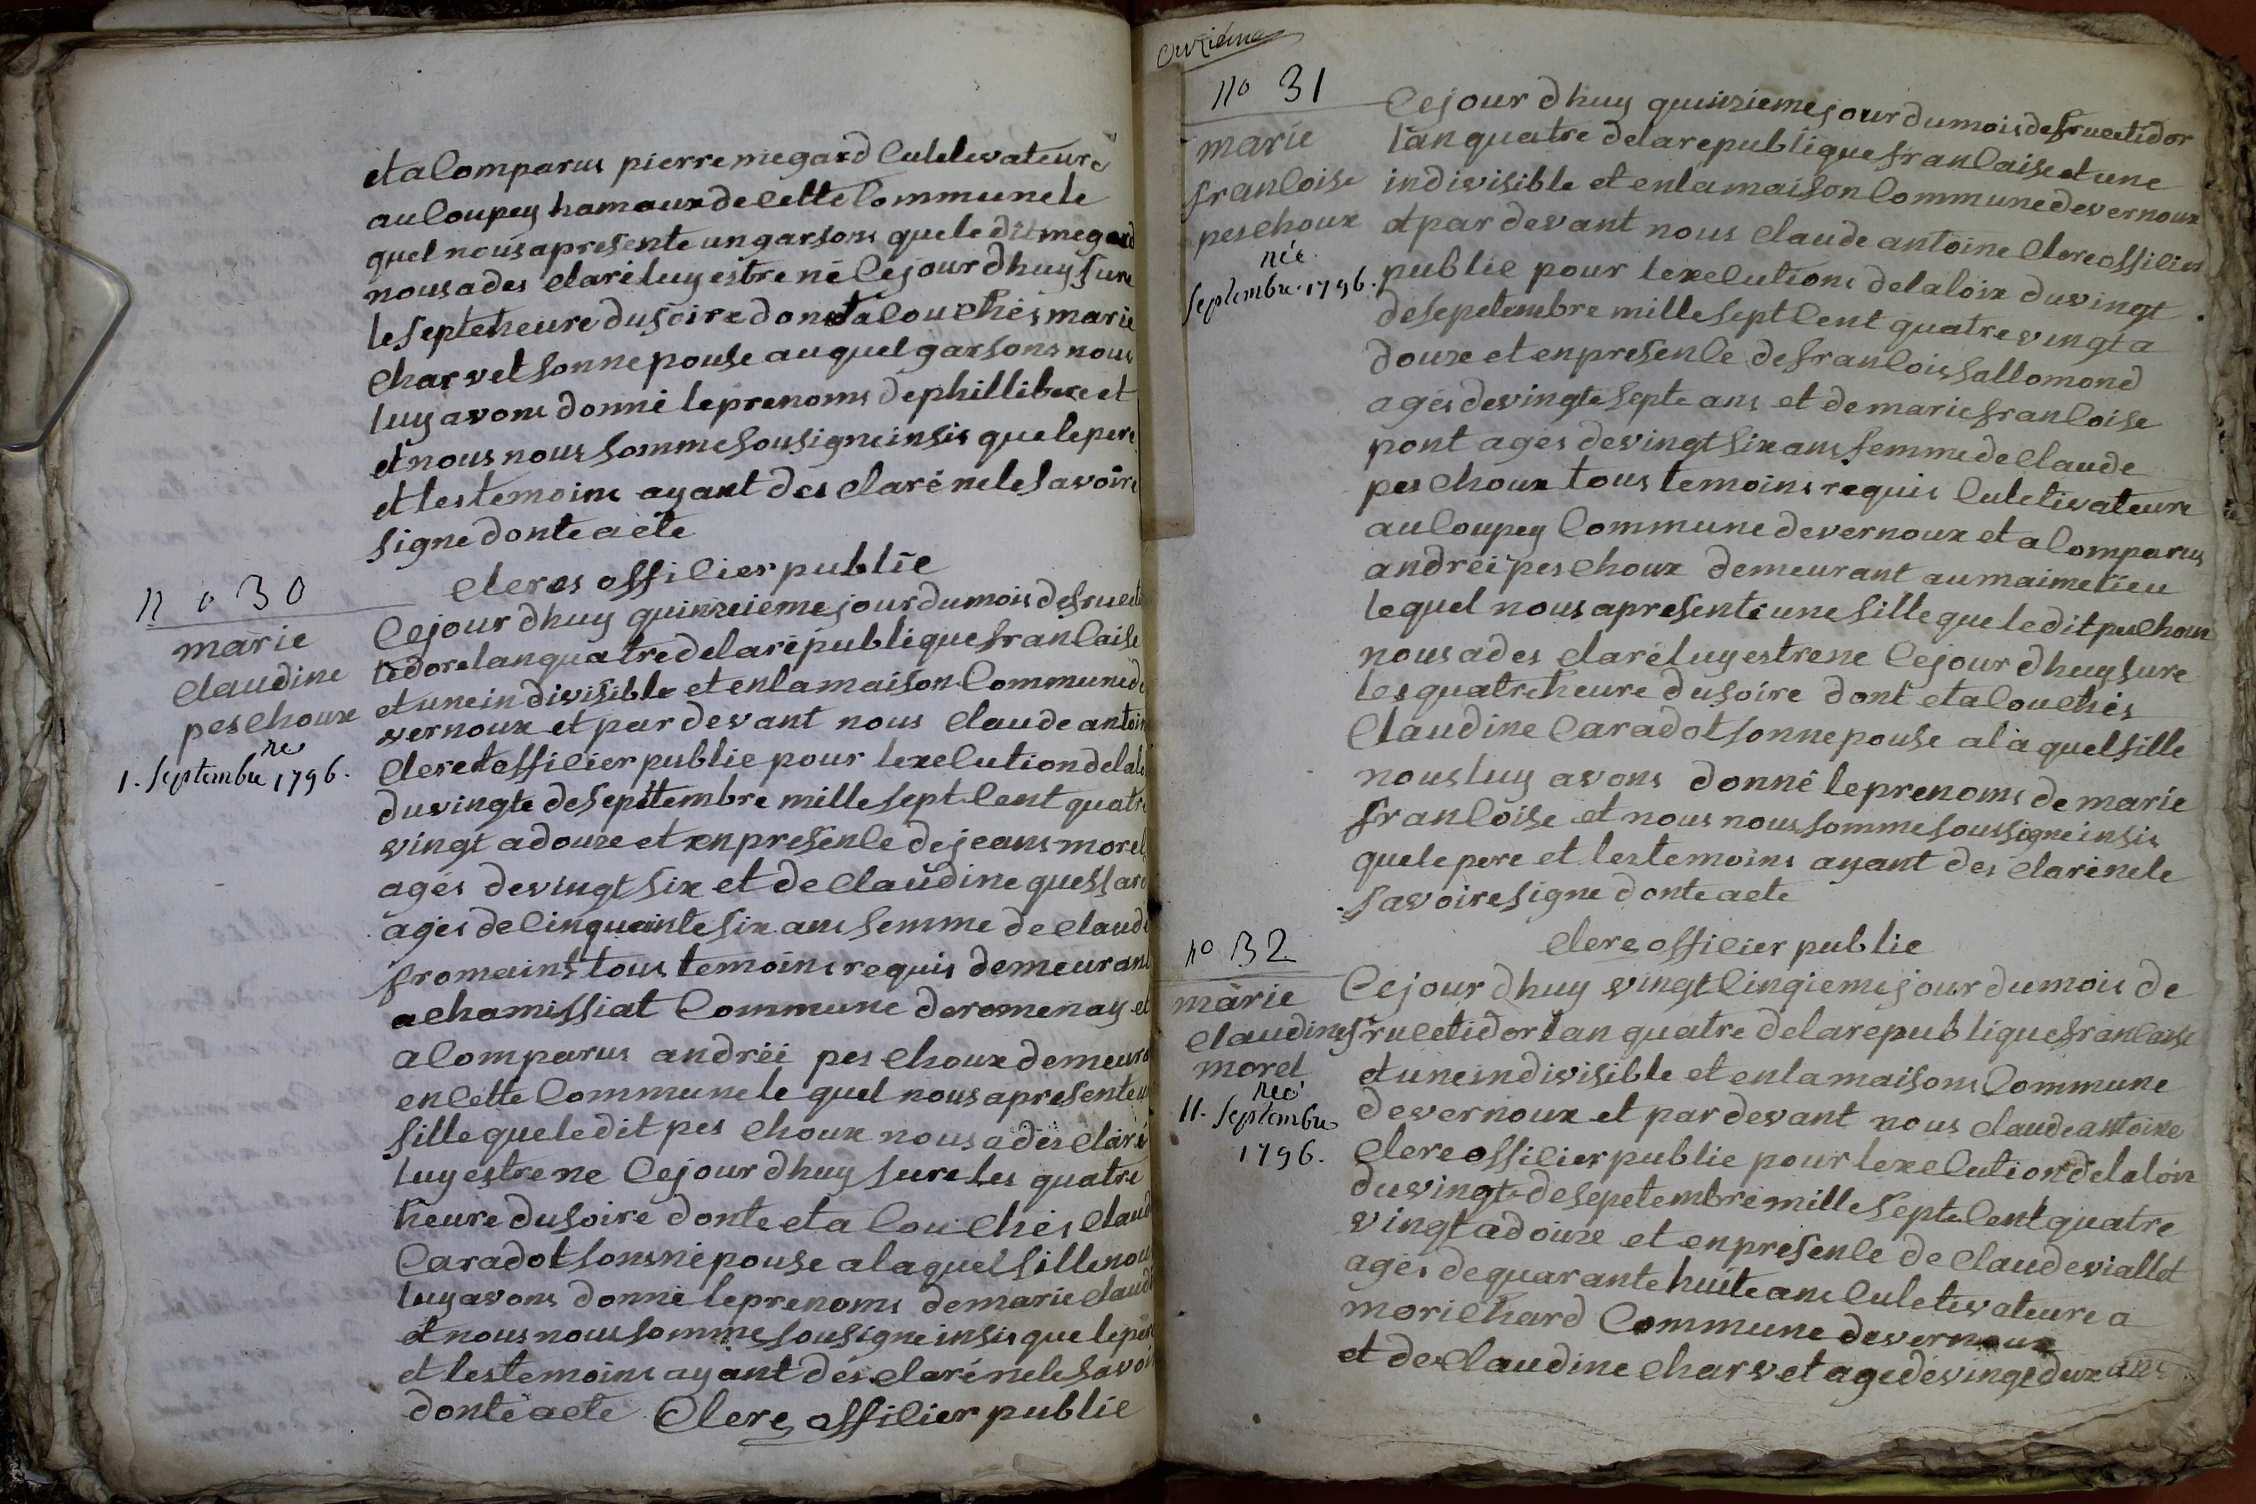 et a Comparus pierre megard Culetevateure
au Coupey hamaux de Cette Commune le
quel nous a presente un garsons que le dit megard
nous a des Claré luy estre né Ce jour dhuy sure
le septe heure du soire dont a Couchés marie
Charvet sonne pouse au quel garsons nous
luy avons donné le prenoms de phillibere et
et nous nous somme sousigne insis que le pere
et les temoins ayant des Claré ne le savoire
signe donte acte
Clere officier publie
n o 30
marie
Claudine
peschoux
née
1. Septembre 1796.
Ce jour dhuy quinzeieme jour du mois de fruecte
tidore lan quatre de la republique francaise
et une in divisible et en la maison Commune de
vernoux et par devant nous Claude antoine
Clere officier publie pour lexecution de la loi
du vingte de septtembre mille sept Cent quatre
vingt a douze et en presence de jeans morel
agés de vingt six et de Claudine quessard
agés de Cinquante six ans femme de Claude
fromains tous temoins requis demeurant
a chamissiat Commune de romenay et
a Comparus andréi pes Choux demeura
en Cette Commune le quel nous a presente une
fille que le dit pes Choux nous a des Claré
luy estre ne Ce jour dhuy sure les quatre
heure du soire donte et a Couchés Claud
Caradot sonne pouse a la quel fille nous
luy avons donné le prenoms de marie Claudi
et nous nous somme sousigne insis que le pere
et les temoins ayant dés Claré ne le savoi
donte acte Clere officier publie
onzième
no 31
marie
francoise
peschoux
née
septembre. 1796.
Ce jour dhuy quinzieme jour du mois de fruectidor
l'an quatre de la republique francaise et une
indivisible et en la maison Commune de vernoux
et par devant nous Claude antoine Clere officier
publie pour lexecutions de la loix du vingt
de sepetembre mille sept Cent quatre vingt a
douze et en presence de francois sallomond
agés de vingte septe ans et de marie francoise
pont agés de vingt six ans femme de Claude
pes Choux tous temoins requis Culetivateure
au Coupey Commune de vernoux et a Comparus
andréi pes Choux demeurant au maime lieu
le quel nous a presenté une fille que le dit pes Choux
nous a des Claré luy estre ne Ce jour dhuy sure
les quatre heure du soire dont et a Couchés
Claudine Caradot sonne pouse a la quel fille
nous luy avons donné le prenoms de marie
francoise et nous nous somme soussigne insis
que le pere et les temoins ayant dés Claré ne le
savoire signe donte acte
Clere officier publie
no 32
marie
Claudine
morel
née
11. Septembre
1796.
Ce jour dhuy vingt Cinqieme jour du mois de
fruectidor lan quatre de la republique francaise
et une indivisible et en la maisons Commune
de vernoux et par devant nous Claude antoine
Clere officier publie pour lexecution de la loix
du vingte de sepetembre mille septe Cent quatre
vingt a douze et en presence de Claude viallet
agés de quarante huite ans Culetevateure a
morichard Commune de vernoux
et de Claudine Charvet age de vingt deux ans